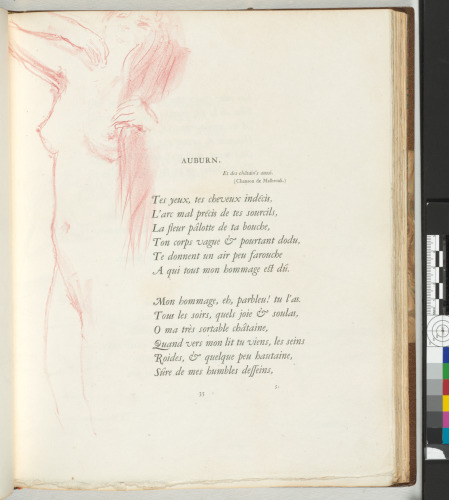 AUBURN.
Et des châtain's aussi.
(Chanson de Malbrouk.)
Tes yeux, tes cheveux indécis,
L'arc mal précis de tes sourcils,
La fleur pâlotte de ta bouche,
Ton corps vague & pourtant dodu,
Te donnent un air peu farouche
A qui tout mon hommage est dû.
Mon hommage, eh, parbleu! tu l'as.
Tous les soirs, quels joie & soulas,
O ma très sortable châtaine,
Quand vers mon lit tu viens, les seins
Roides, & quelque peu hautaine,
Sûre de mes humbles desseins,
33